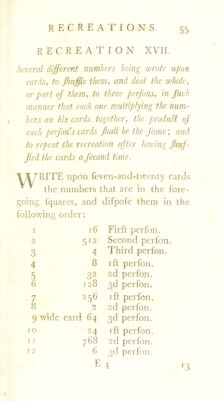 RECREATIONS. 55
RECREATION XVII.
Several different numbers being wrote upon
cards, to ſhuffle them, and deal the whole,
or part of them, to three perſons, in ſuch
manner that each one multiplying the num-
bers on his cards together, the product of
each perſon's cards ſhall be the ſame; and
to repeat the recreation after having ſhuf-
fled the cards a ſecond time.
WRITE upon ſeven-and-twenty cards
the numbers that are in the fore-
going ſquares, and diſpoſe them in the
following order:
1 16 Firſt perſon.
2 512 Second perſon.
3 4 Third perſon.
4 8 1ſt perſon.
5 32 2d perſon.
6 128 3d perſon.
7 256 1ſt perſon.
8 2 2d perſon.
9 wide card 64 3d perſon.
10 24 1ſt perſon.
11 768 2d perſon.
12 6 3d perſon.
E 4 13